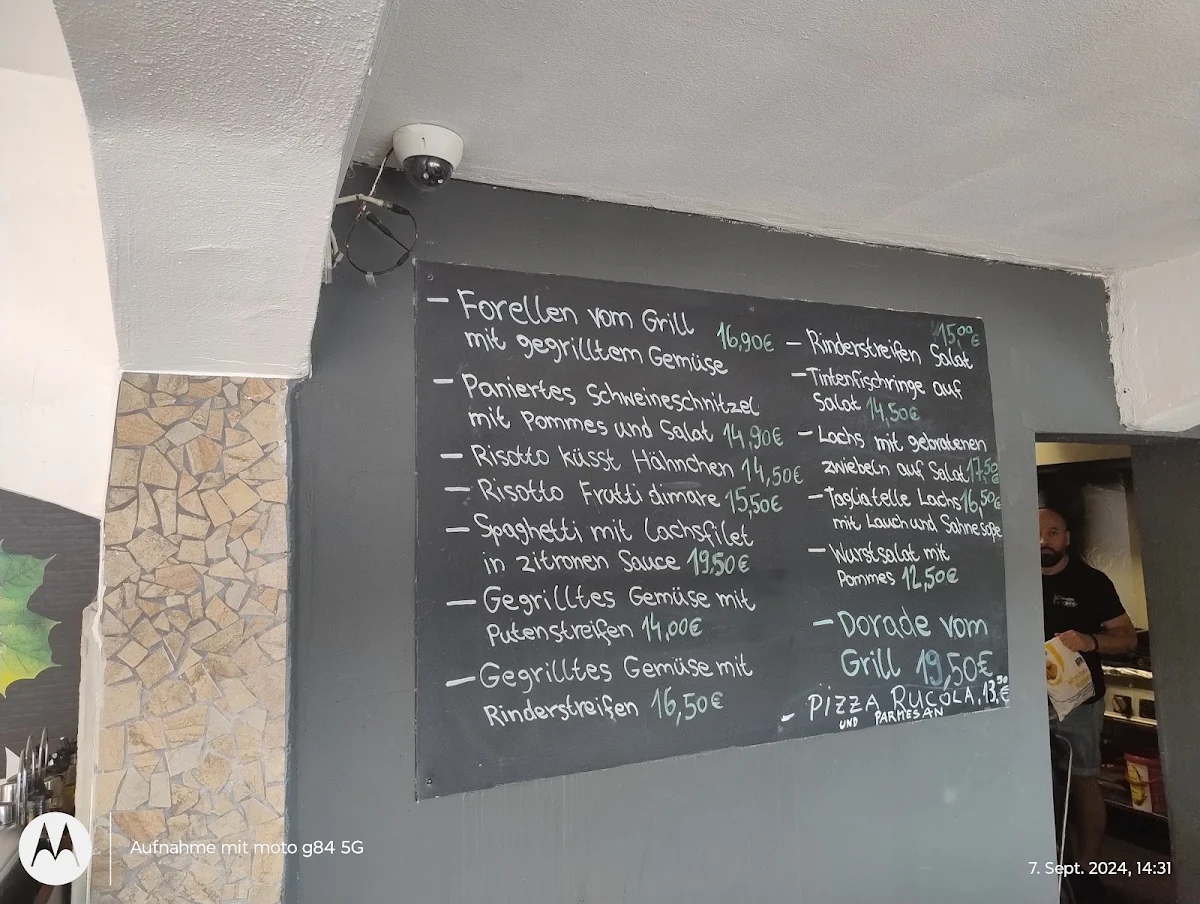 – Forellen vom Grill
mit gegrilltem Gemüse 16,90€
– Paniertes Schweineschnitzel
mit Pommes und Salat 14,90€
– Risotto küsst Hähnchen 14,50€
– Risotto Frutti dimare 15,50€
– Spaghetti mit Lachsfilet
in zitronen Sauce 19,50€
– Gegrilltes Gemüse mit
Putenstreifen 14,00€
– Gegrilltes Gemüse mit
Rinderstreifen 16,50€
15,00€
– Rinderstreifen Salat
– Tintenfischringe auf
Salat 14,50€
– Lachs mit gebratenen
zwiebeln auf Salat 17,50€
– Tagliatelle Lachs 16,50€
mit Lauch und Sahne soße
– Wurstsalat mit
Pommes 12,50€
– Dorade vom
Grill 19,50€
– PIZZA RUCOLA, 13,50€
UND PARMESAN
Aufnahme mit moto g84 5G
7. Sept. 2024, 14:31